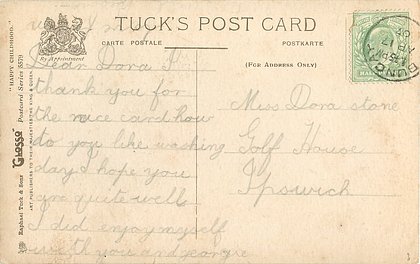 TUCK'S POST CARD
CARTE POSTALE
POSTKARTE
By Appointment
(FOR ADDRESS ONLY)
"HAPPY CHILDHOOD."
"Glosso" Postcard Series 5579
Raphael Tuck & Sons
ART PUBLISHERS TO THEIR MAJESTIES THE KING & QUEEN.
Dear Dora I
thank you for
the race card how
do you like washing
day I hope you
are quite well
I did enjoy myself
with you and
Miss Dora stone
Golf House
Ipswich
HALF
AP 17